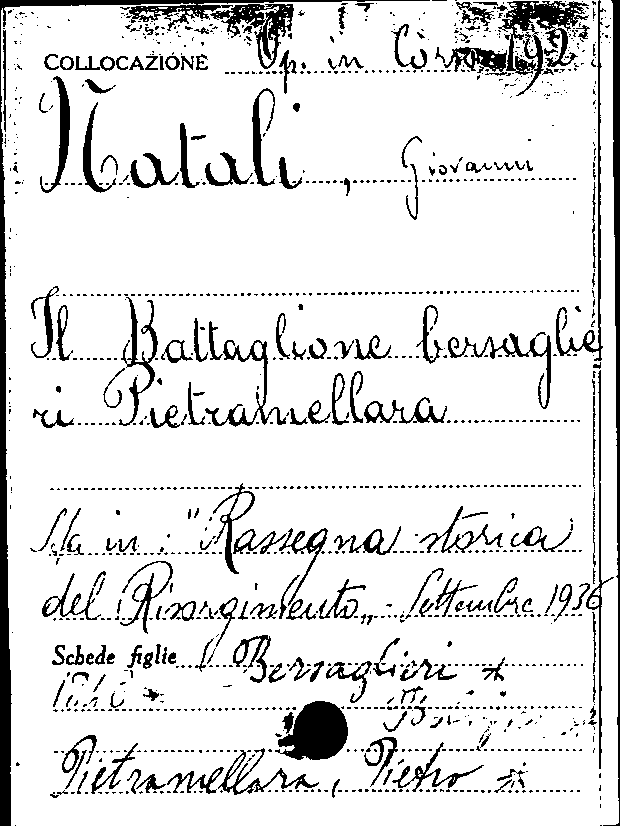 COLLOCAZIONE Op. in Corso 192
Natali, Giovanni
Il Battaglione bersaglie
ri Pietramellara
Sta in: "Rassegna storica
del Risorgimento„ - Settembre 1936
Schede figlie Bersaglieri *
Pietramellara, Pietro *